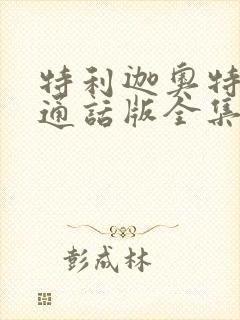 特利迦奥特
通话版全集
彭成林